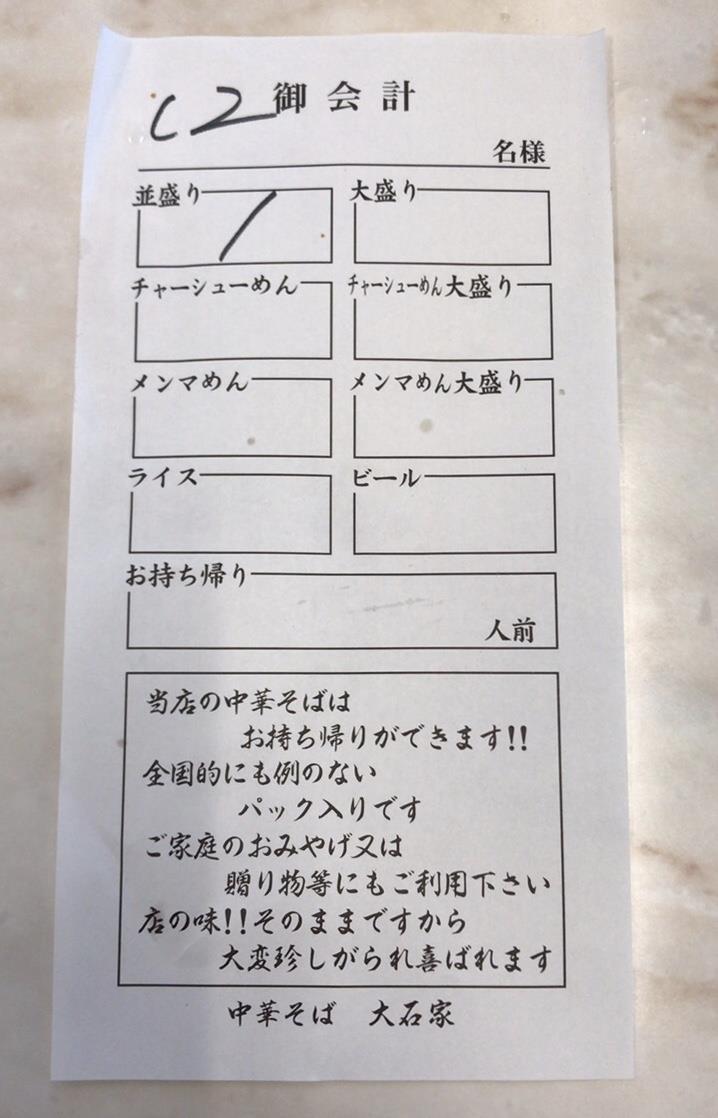 C2 御会計
名様
並盛り 大盛り
/
チャーシューめん チャーシューめん大盛り
メンマめん メンマめん大盛り
ライス ビール
お持ち帰り
人前
当店の中華そばは
お持ち帰りができます!!
全国的にも例のない
パック入りです
ご家庭のおみやげ又は
贈り物等にもご利用下さい
店の味!!そのままですから
大変珍しがられ喜ばれます
中華そば 大石家